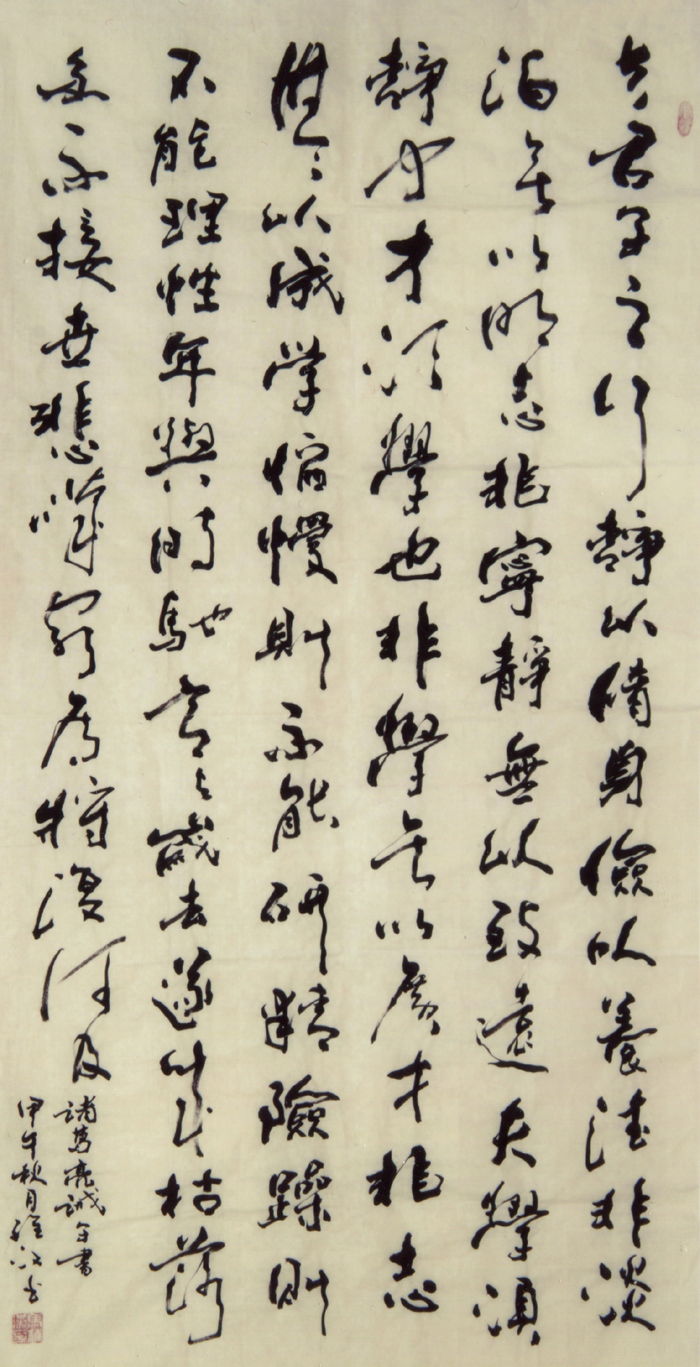 夫君子之行靜以脩身儉以養德非淡
泊无以明志非寧靜無以致遠夫學須
靜也才須學也非學无以廣才非志
無以成学慆慢則不能研精險躁則
不能理性年與時馳意与歲去遂成枯落
多不接世悲嘆窮廬將復何及
諸葛亮誡子書
甲午秋月书